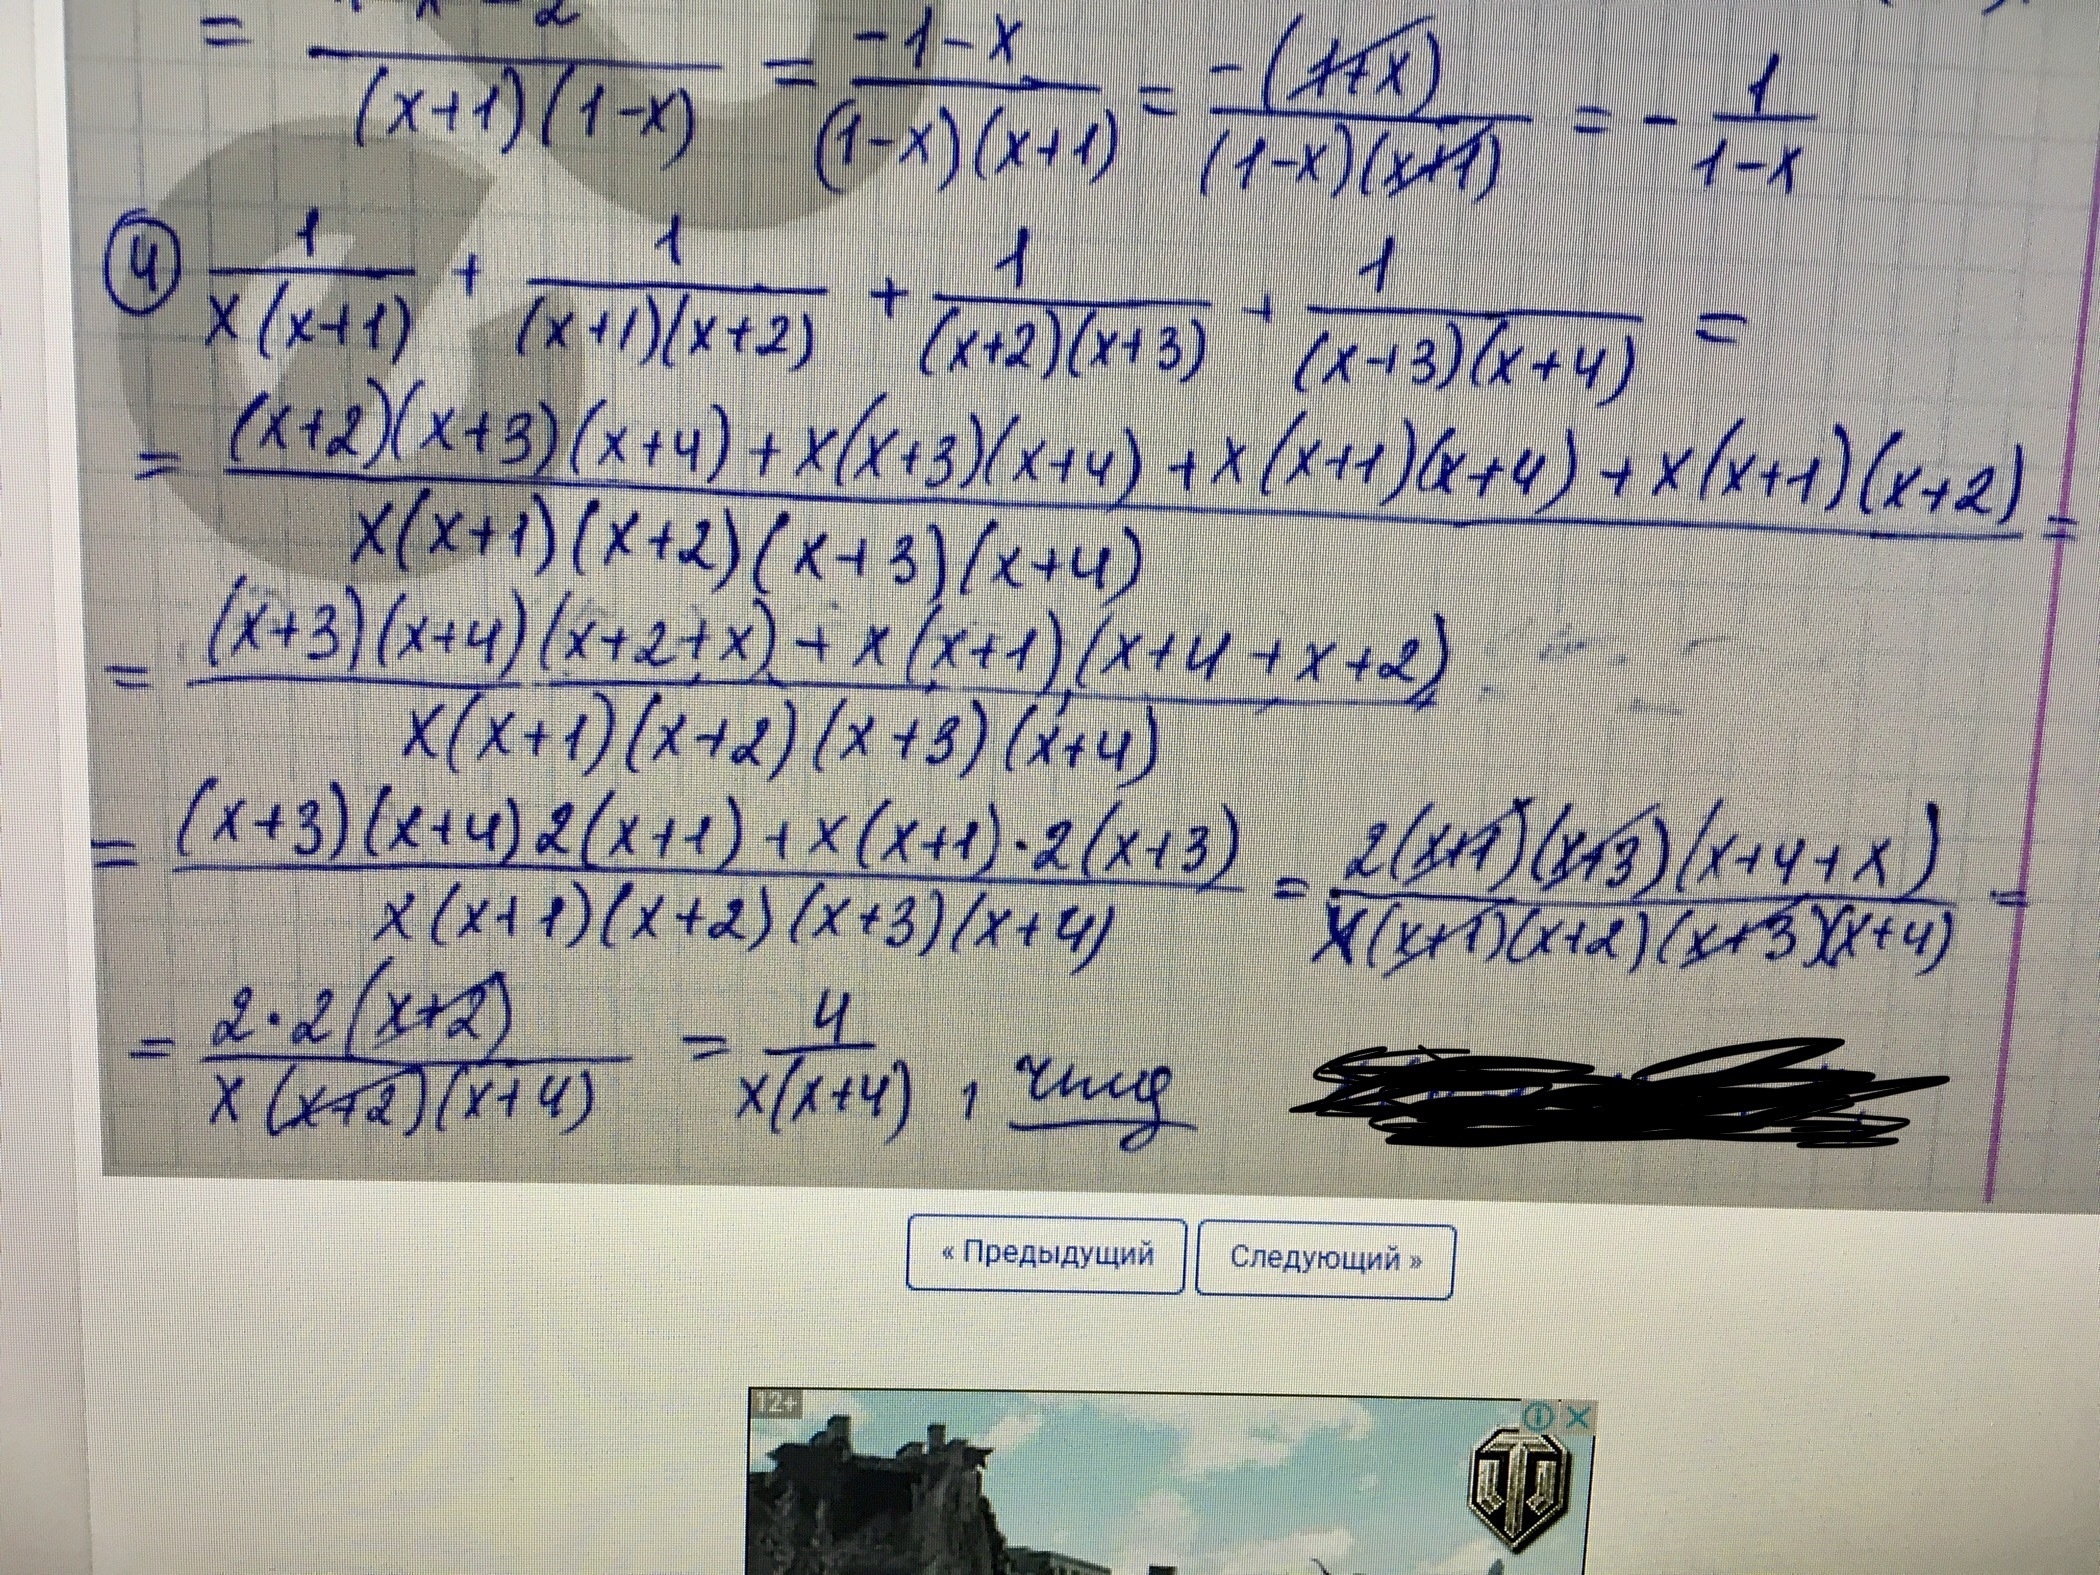 = / (x+1)(1-x) = -1-x / (1-x)(x+1) = -(1+x) / (1-x)(x+1) = - 1 / 1-x
④ 1 / x(x+1) + 1 / (x+1)(x+2) + 1 / (x+2)(x+3) + 1 / (x+3)(x+4) =
= (x+2)(x+3)(x+4)+x(x+3)(x+4)+x(x+1)(x+4)+x(x+1)(x+2) / x(x+1)(x+2)(x+3)(x+4) =
= (x+3)(x+4)(x+2+x)+x(x+1)(x+4+x+2) / x(x+1)(x+2)(x+3)(x+4)
= (x+3)(x+4)2(x+1)+x(x+1)·2(x+3) / x(x+1)(x+2)(x+3)(x+4) = 2(x+1)(x+3)(x+4+x) / x(x+1)(x+2)(x+3)(x+4) =
= 2·2(x+2) / x(x+2)(x+4) = 4 / x(x+4) , чтд
« Предыдущий Следующий »
12+